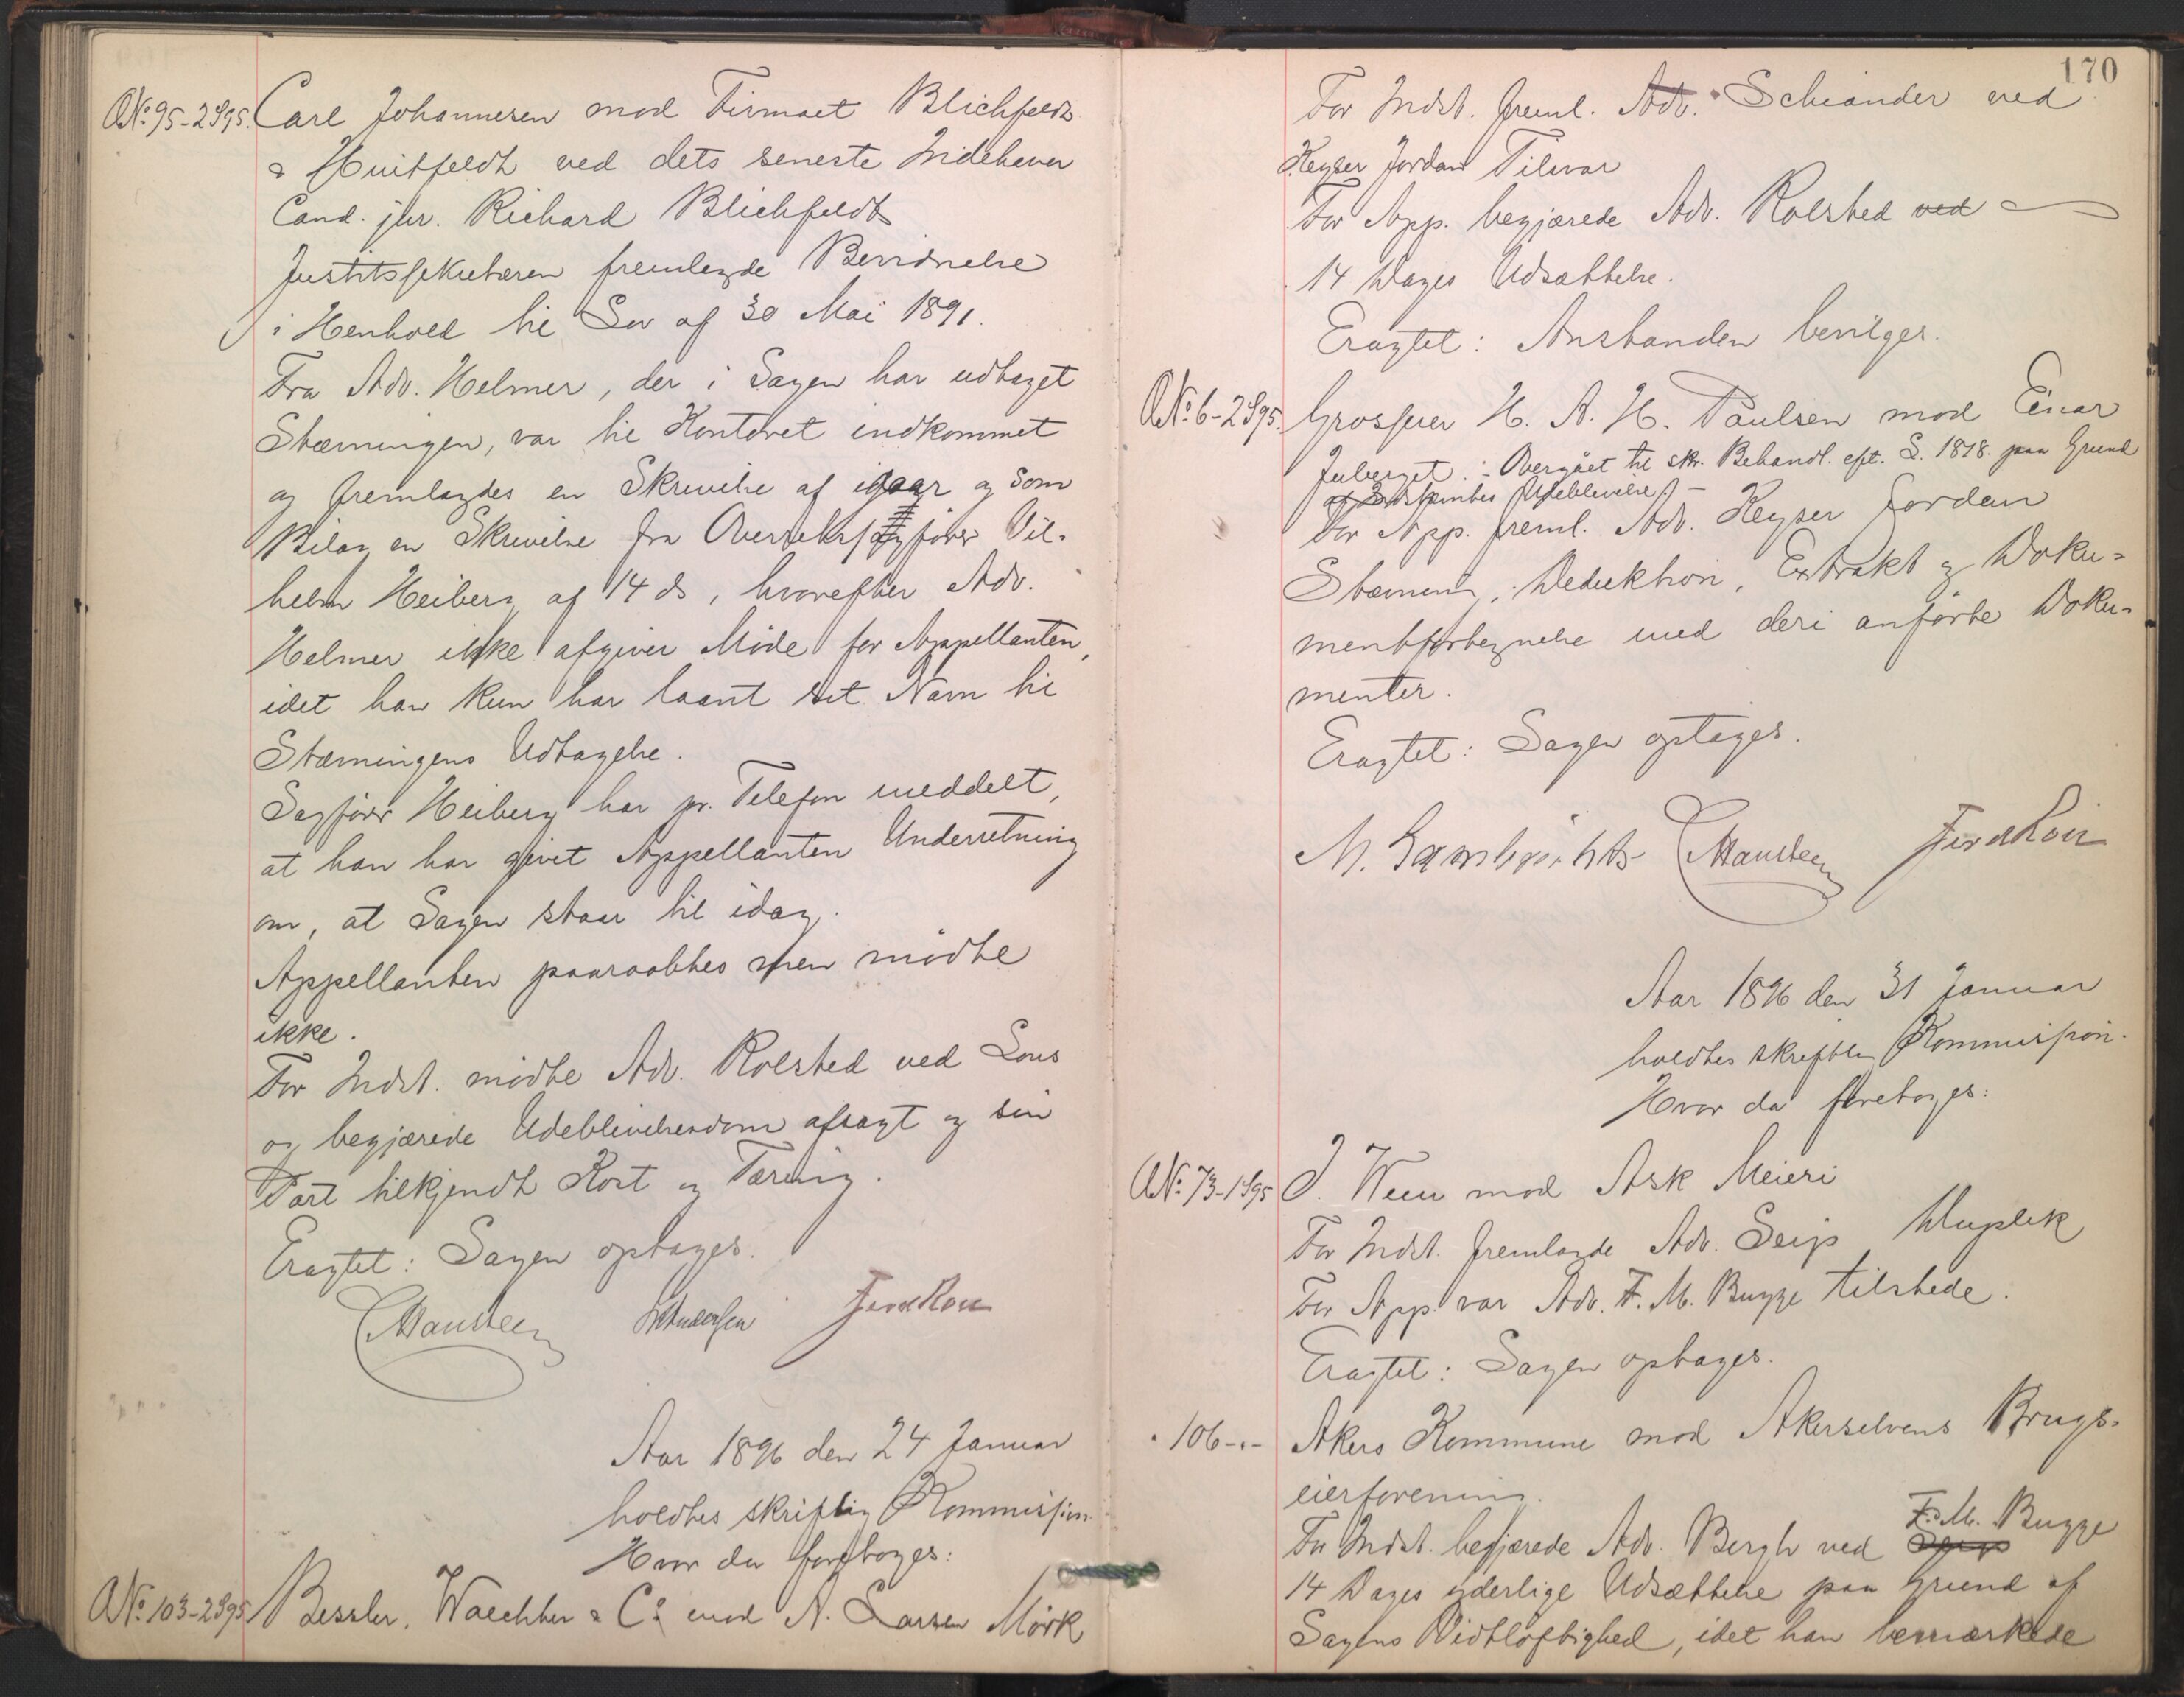 ANo. 95-2S95. Carl Johannesen mod Firmaet Blichfeldt
& Huitfeldt ved dets seneste Indehaver
Cand. jur. Richard Blichfeldt
Justitssekretæren fremlagde Bevidnelse
i Henhold til Lov af 30 Mai 1891.
Fra Adv. Helmer, der i Sagen har udtaget
Stævningen, var til Kontoret indkommet
og fremlagdes en Skrivelse af igaar og som
Bilag en Skrivelse fra Overretssagfører Vil-
helm Heiberg af 14 ds, hvorefter Adv.
Helmer ikke afgiver Møde for Appellanten,
idet han kun har laant sit Navn til
Stævningens Udtagelse.
Sagfører Heiberg har pr. Telefon meddelt,
at han har givet Appellanten Underretning
om, at Sagen staar til idag.
Appellanten paaraabtes men mødte
ikke.
For Indst. mødte Adv. Rolsted ved Lous
og begjærede Udeblivelsesdom afsagt og sin
Part tilkjendt Kost og Tæring.
Eragtet: Sagen optages.
CHansteen
Aar 1896 den 24 Januar
holdtes skriftlig Kommission.
Hvor da foretoges:
ANo. 103-2S95 Bessler, Waechter & Co. mod A. Larsen Mørk
170
For Indst. freml. Adv. Schiander ved
Keyser Jordan Tilsvar
For App. begjærede Adv. Rolsted ved
14 Dages Udsættelse.
Eragtet: Anstanden bevilges.
ANo. 6-2S95. Grosserer H. A. H. Paulsen mod Einar
Juberget :- Overgået til skr. Behandl. eft. L. 1818 paa Grund
af Indstevntes Udeblivelse -
For App. freml. Adv. Keyser Jordan
Stævning, Deduktion, Extrakt og Doku-
mentfortegnelse med deri anførte Doku-
menter.
Eragtet: Sagen optages.
M. Lambrechts CHansteen
Aar 1896 den 31 Januar
holdtes skriftlig Kommission.
Hvor da foretoges:
ANo. 73-1S95 J. Wen mod Ask Meieri
For Indst. fremlagde Adv. Seip Duplik
For App. var Adv. F. M. Bugge tilstede.
Eragtet: Sagen optages.
" 106-"- Akers Kommune mod Akerselvens Brugs-
eierforening.
For Indst. begjærede Adv. Bergh ved Seip F. M. Bugge
14 Dages yderlige Udsættelse paa Grund af
Sagens Vidtløftighed, idet han bemærkede